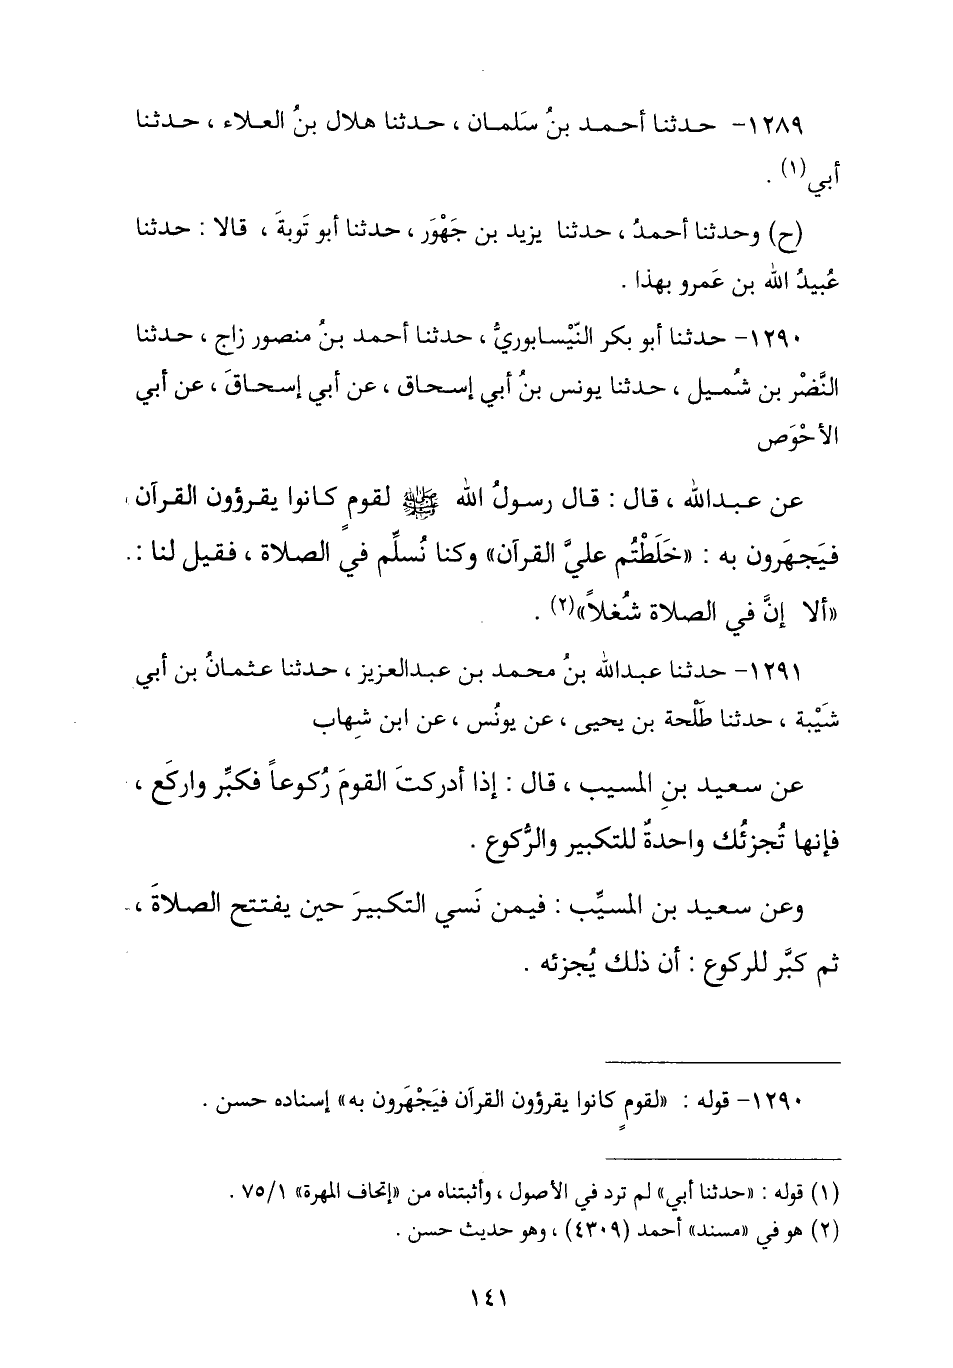 ١٢٨٩- حدثنا أحمد بنُ سَلمان ، حدثنا هلال بنُ العلاء ، حدثنا
أبي(١) .
(ح) وحدثنا أحمدُ ، حدثنا يزيد بن جَهْوَر ، حدثنا أبو تَوبةَ ، قالا : حدثنا
عُبيدُ الله بن عَمرو بهذا .
١٢٩٠- حدثنا أبو بكر النَّيْسابوريُّ ، حدثنا أحمد بنُ منصور زاج ، حدثنا
النَّضْر بن شُميل ، حدثنا يونس بنُ أبي إسحاق ، عن أبي إسحاقَ ، عن أبي
الأحْوَص
عن عبدالله ، قال : قال رسولُ الله ﷺ لقومٍ كانوا يقرؤون القرآن ،
فيَجهَرون به : «خَلَطْتُم عليَّ القرآن» وكنا نُسلِّم في الصلاة ، فقيل لنا :
«ألا إنَّ في الصلاة شُغلاً»(٢) .
١٢٩١- حدثنا عبدالله بنُ محمد بن عبدالعزيز ، حدثنا عثمانُ بن أبي
شَيْبة ، حدثنا طَلْحة بن يحيى ، عن يونُس ، عن ابن شِهاب
عن سعيد بنِ المسيب ، قال : إذا أدركتَ القومَ رُكوعاً فكبِّر واركَع ،
فإنها تُجزئُك واحدةٌ للتكبير والرُّكوع .
وعن سعيد بن المسيِّب : فيمن نَسي التكبيرَ حين يفتتح الصلاةَ ،
ثم كبَّر للركوع : أن ذلك يُجزئه .
١٢٩٠- قوله : «لقومٍ كانوا يقرؤون القرآن فيَجْهَرون به» إسناده حسن .
(١) قوله : «حدثنا أبي» لم ترد في الأصول ، وأثبتناه من «إتحاف المهرة» ٧٥/١ .
(٢) هو في «مسند» أحمد (٤٣٠٩) ، وهو حديث حسن .
١٤١